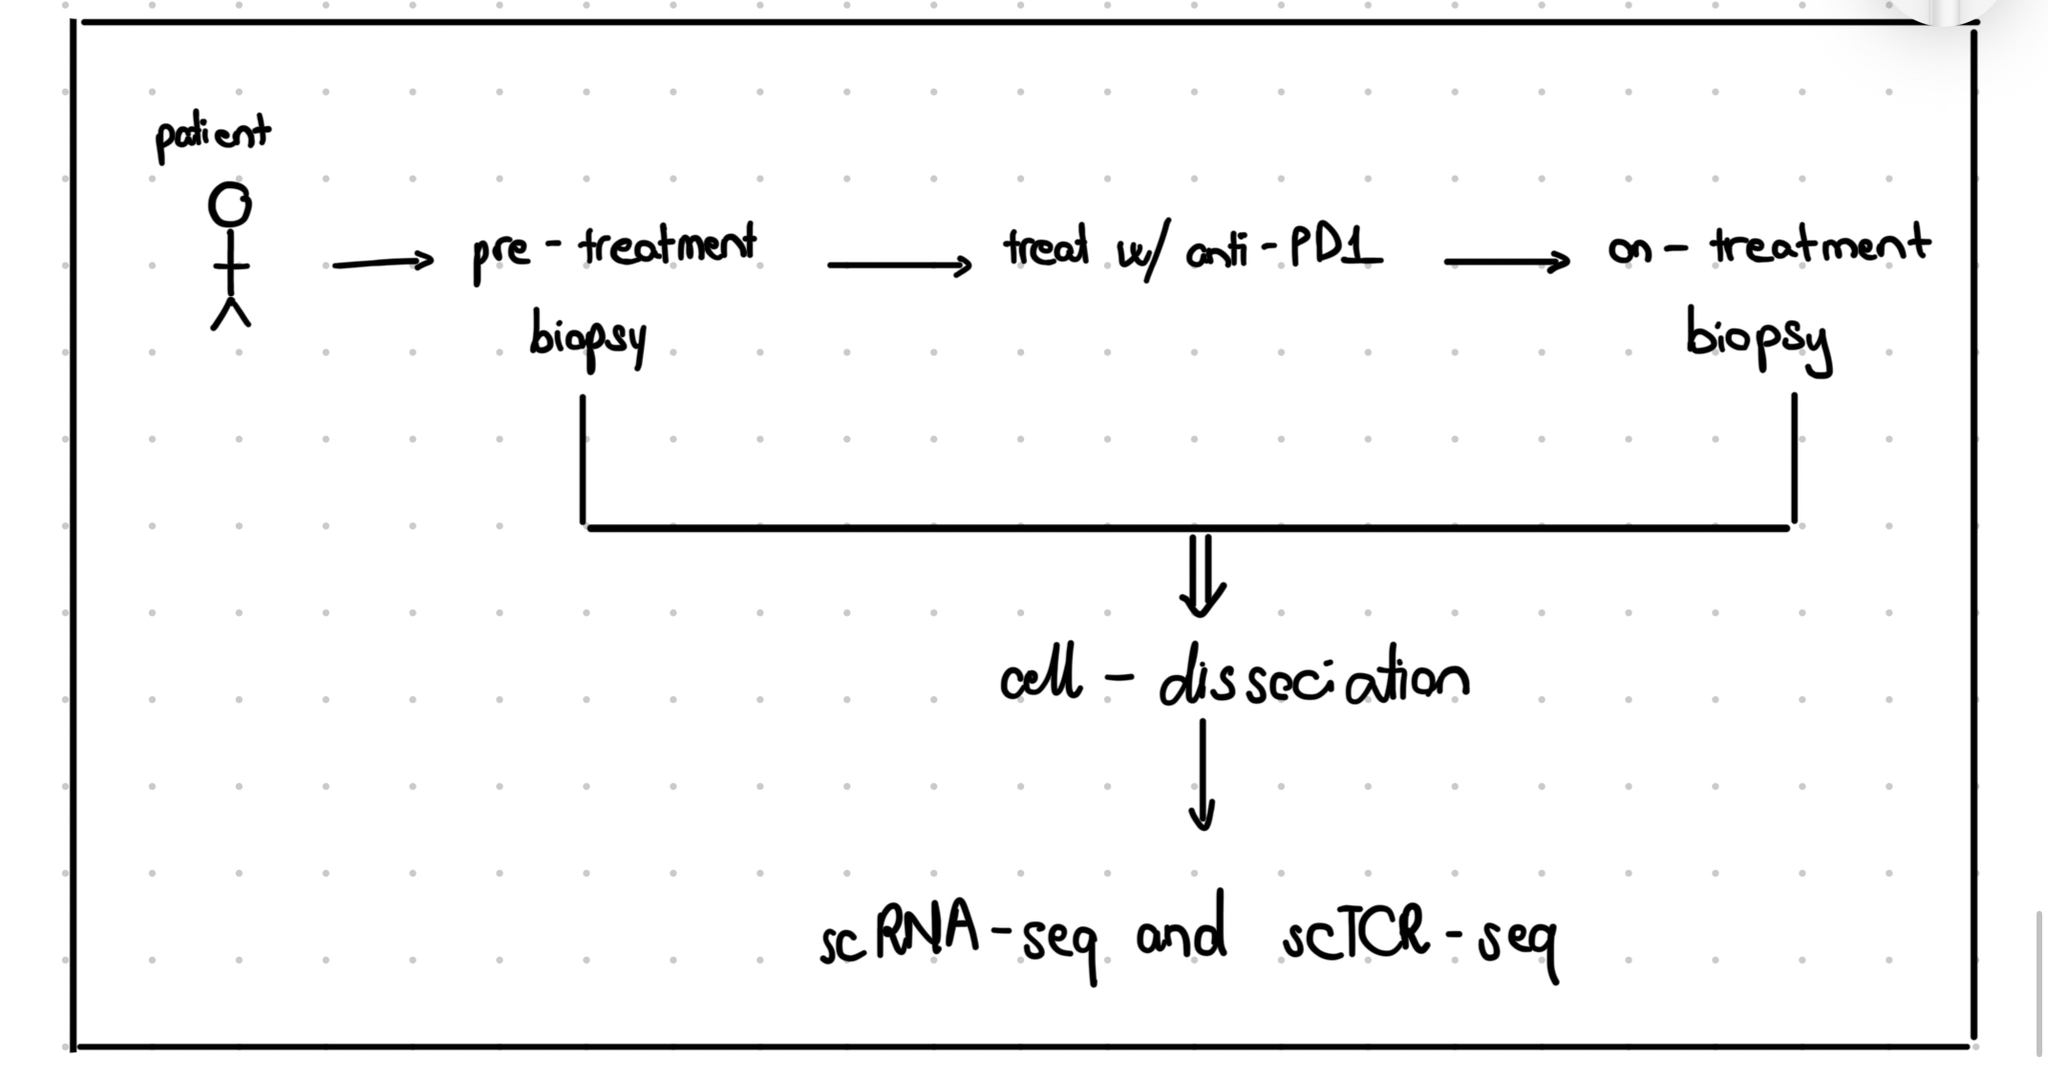 patient
pre - treatment
biopsy
treat w/ anti-PD1
on - treatment
biopsy
cell - dissociation
scRNA-seq and scTCR-seq